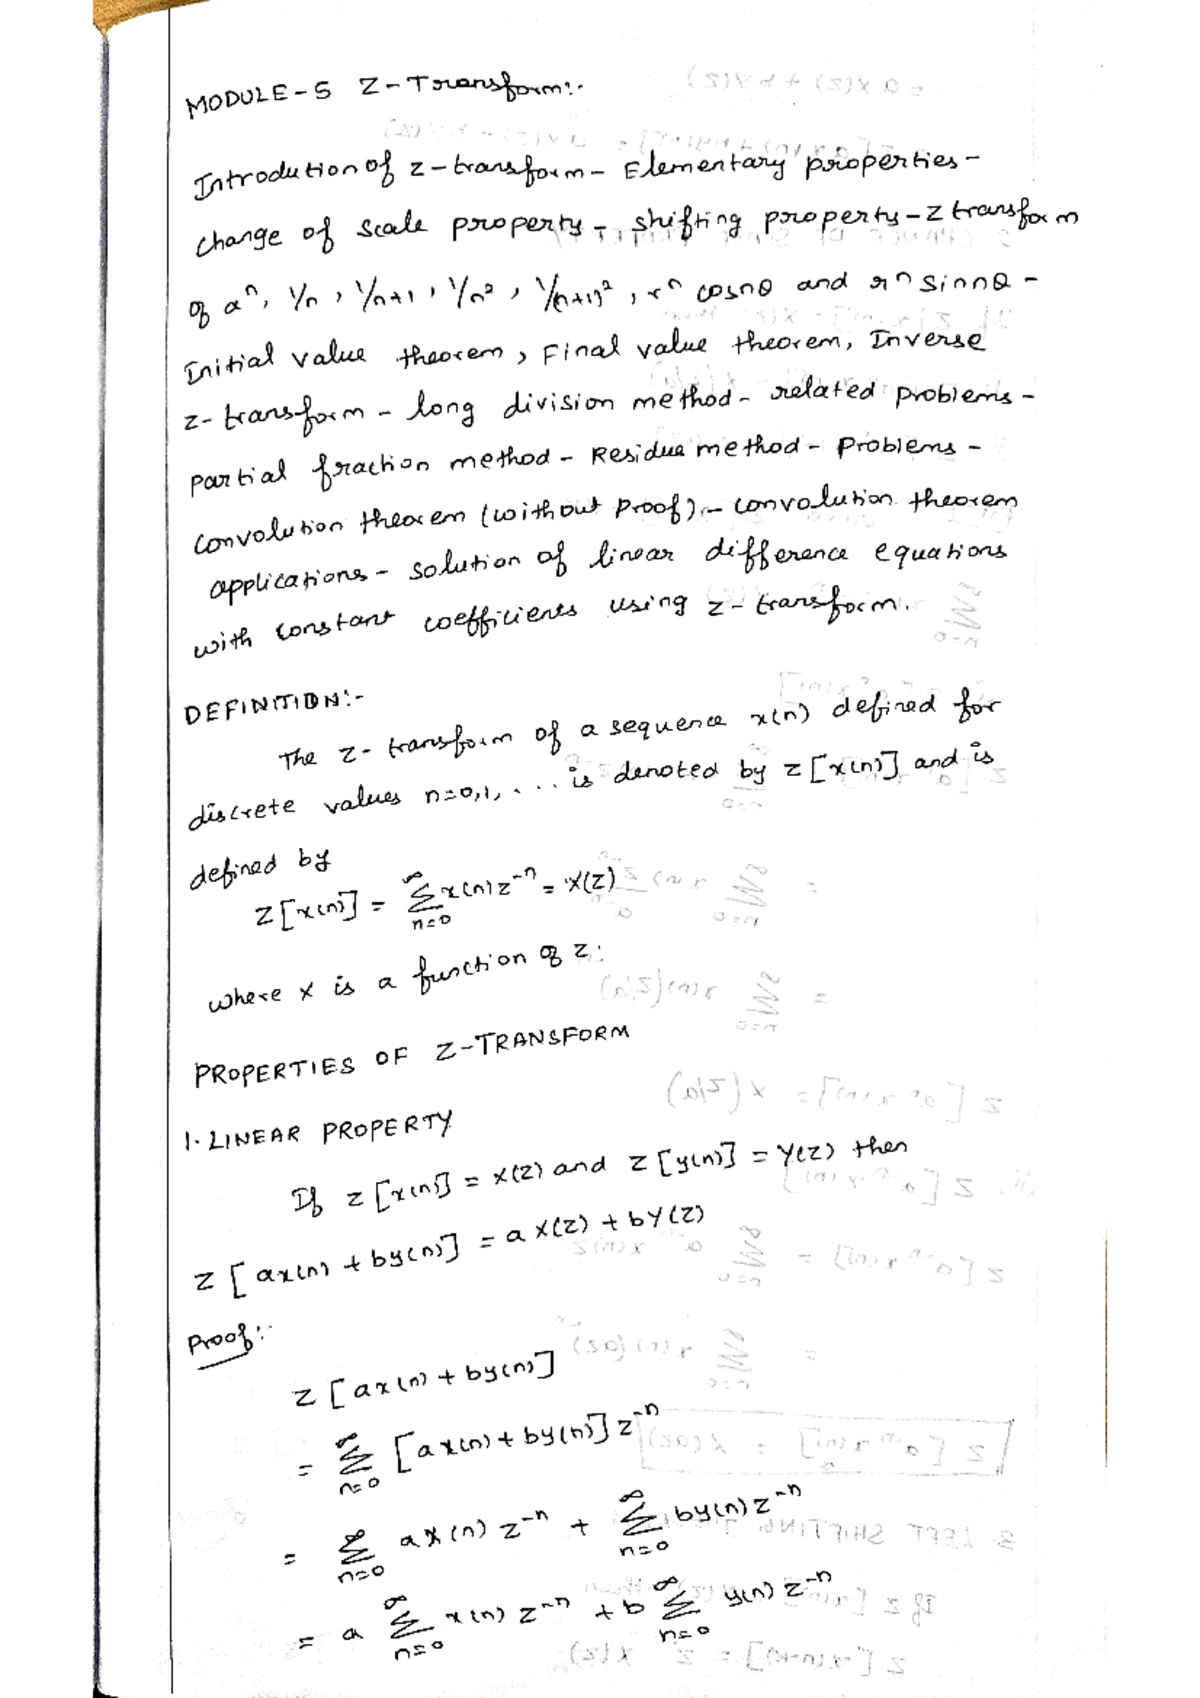 MODULE-5 Z-Transform:-
Introdution of z-transform - Elementary properties -
change of scale property - shifting property - Z transform
of aⁿ, 1/n, 1/n+1, 1/n², 1/(n+1)², rⁿ cosnθ and rⁿ sinnθ -
Initial value theorem, Final value theorem, Inverse
z-transform - long division method - related problems -
partial fraction method - Residue method - Problems -
convolution theorem (without proof) - convolution theorem
applications - solution of linear difference equations
with constant coefficients using z-transform.
DEFINITION:-
The z-transform of a sequence x(n) defined for
discrete values n=0,1,... is denoted by z[x(n)] and is
defined by
Z[x(n)] = ∞ Σ n=0 x(n)z⁻ⁿ = X(Z)
where X is a function of z.
PROPERTIES OF Z-TRANSFORM
1. LINEAR PROPERTY
If z[x(n)] = X(Z) and z[y(n)] = Y(Z) then
z[ax(n) + by(n)] = a X(Z) + bY(Z)
Proof:-
z[ax(n) + by(n)]
= ∞ Σ n=0 [ax(n) + by(n)] z⁻ⁿ
= ∞ Σ n=0 ax(n) z⁻ⁿ + ∞ Σ n=0 by(n) z⁻ⁿ
= a ∞ Σ n=0 x(n) z⁻ⁿ + b ∞ Σ n=0 y(n) z⁻ⁿ